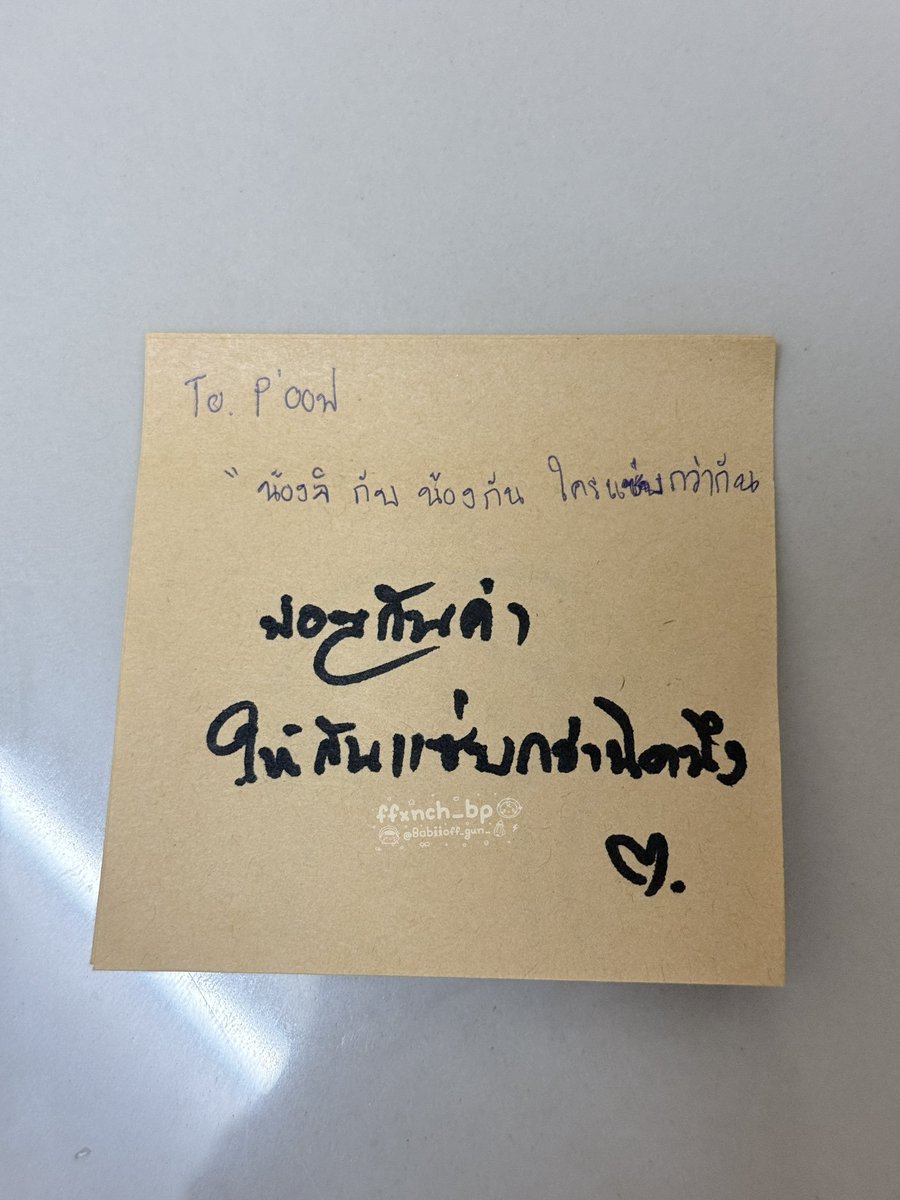 To. P'ออฟ
" น้องลิ กับ น้องกัน ใครแซ่บกว่ากัน
กันค่า
ให้กันแซ่บกว่านิดนึง
ffxnch_bp
@Babiioff_gun_